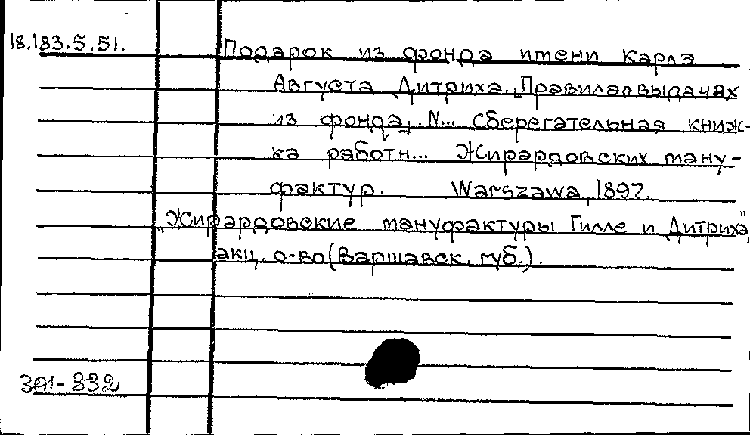 18.183.5.51.
Подарок из фонда имени Карла
Августа Дитриха. Правила о выдачах
из фонда, N... сберегательная книж-
ка работн... Жирардовских ману-
фактур. Warszawa, 1897.
"Жирардовские мануфактуры Гилле и Дитриха"
акц. о-во (Варшавск. губ.).
-832